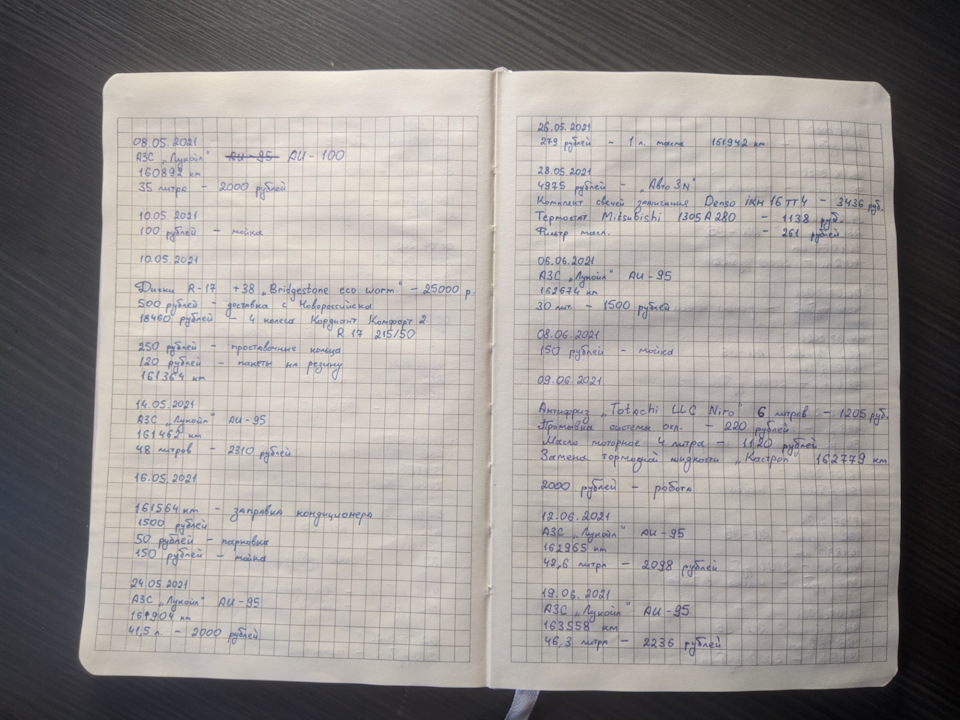 08.05.2021
АЗС „Лукойл" АИ-95 АИ-100
160892 км
35 литра - 2000 рублей
10.05 2021
100 рублей - мойка
10.05.2021
Диски R-17 +38 „Bridgestone eco worm" - 25000 р.
500 рублей - доставка с Новороссийска
18460 рублей - 4 колеса Кордиант Комфорт 2
R 17 215/50
250 рублей - проставочные кольца
120 рублей - пакеты на резину
161364 км
14.05.2021
АЗС „Лукойл" АИ-95
161462 км
48 литров - 2310 рублей
16.05.2021
161564 км - заправка кондиционера
1500 рублей
50 рублей - парковка
150 рублей - мойка
24.05.2021
АЗС „Лукойл" АИ-95
161904 км
41,5 л. - 2000 рублей
26.05.2021
279 рублей - 1 л. масла 161942 км
28.05.2021
4975 рублей - „Авто 3N"
Комплект свечей зажигания Denso iкн 16 тт 4 - 3436 руб.
Термостат Mitsubishi 1305A280 - 1138 руб.
Фильтр масл. - 261 рублей
06.06.2021
АЗС „Лукойл" АИ-95
162674 км
30 лит. - 1500 рублей
08.06.2021
150 рублей - мойка
09.06.2021
Антифриз „Totachi LLC Niro" 6 литров - 1205 руб.
Промывка системы охл. - 220 рублей
Масло моторное 4 литра - 1120 рублей
Замена тормозной жидкости „Кастрол" 162779 км
2000 рублей - робота
12.06.2021
АЗС „Лукойл" АИ-95
162965 км
42,6 литра - 2098 рублей
19.06.2021
АЗС „Лукойл" АИ-95
163558 км
46,3 литра - 2236 рублей